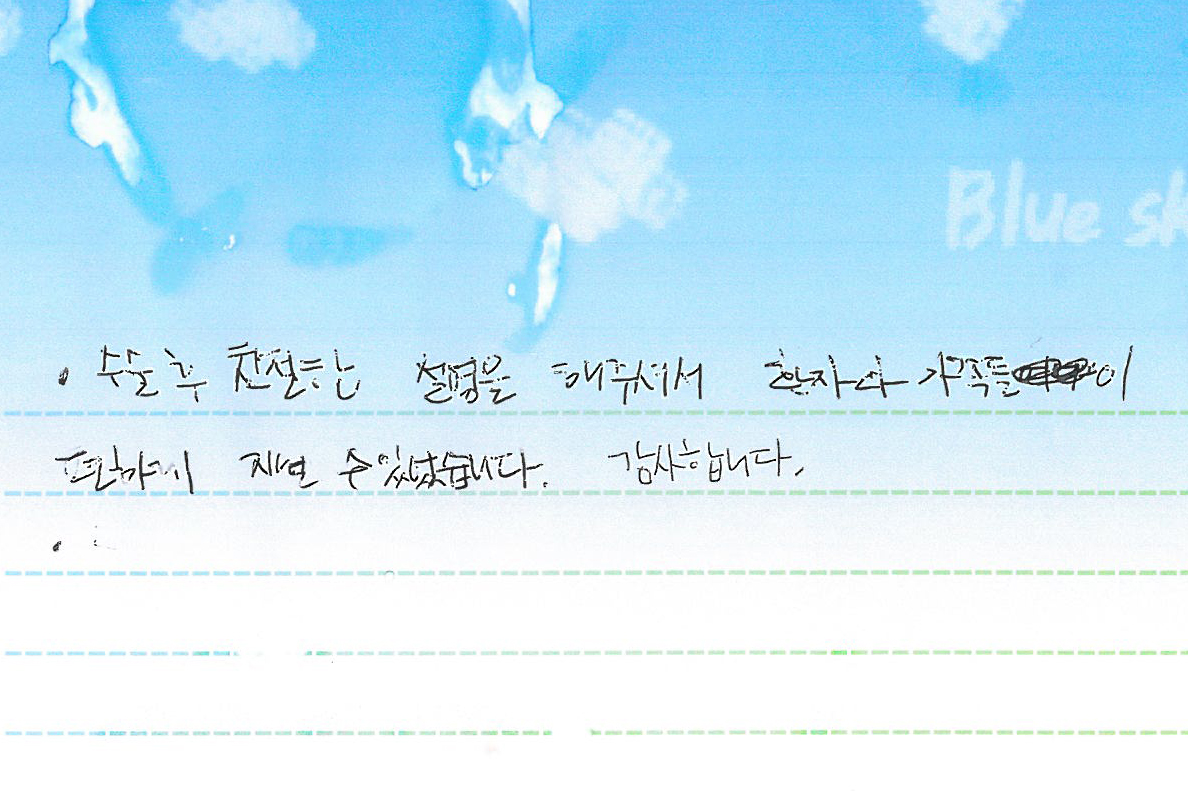 Blue sk
· 수술 후 친절한 설명을 해주셔서 환자나 가족들이
편하게 지낼 수 있었습니다. 감사합니다.
·